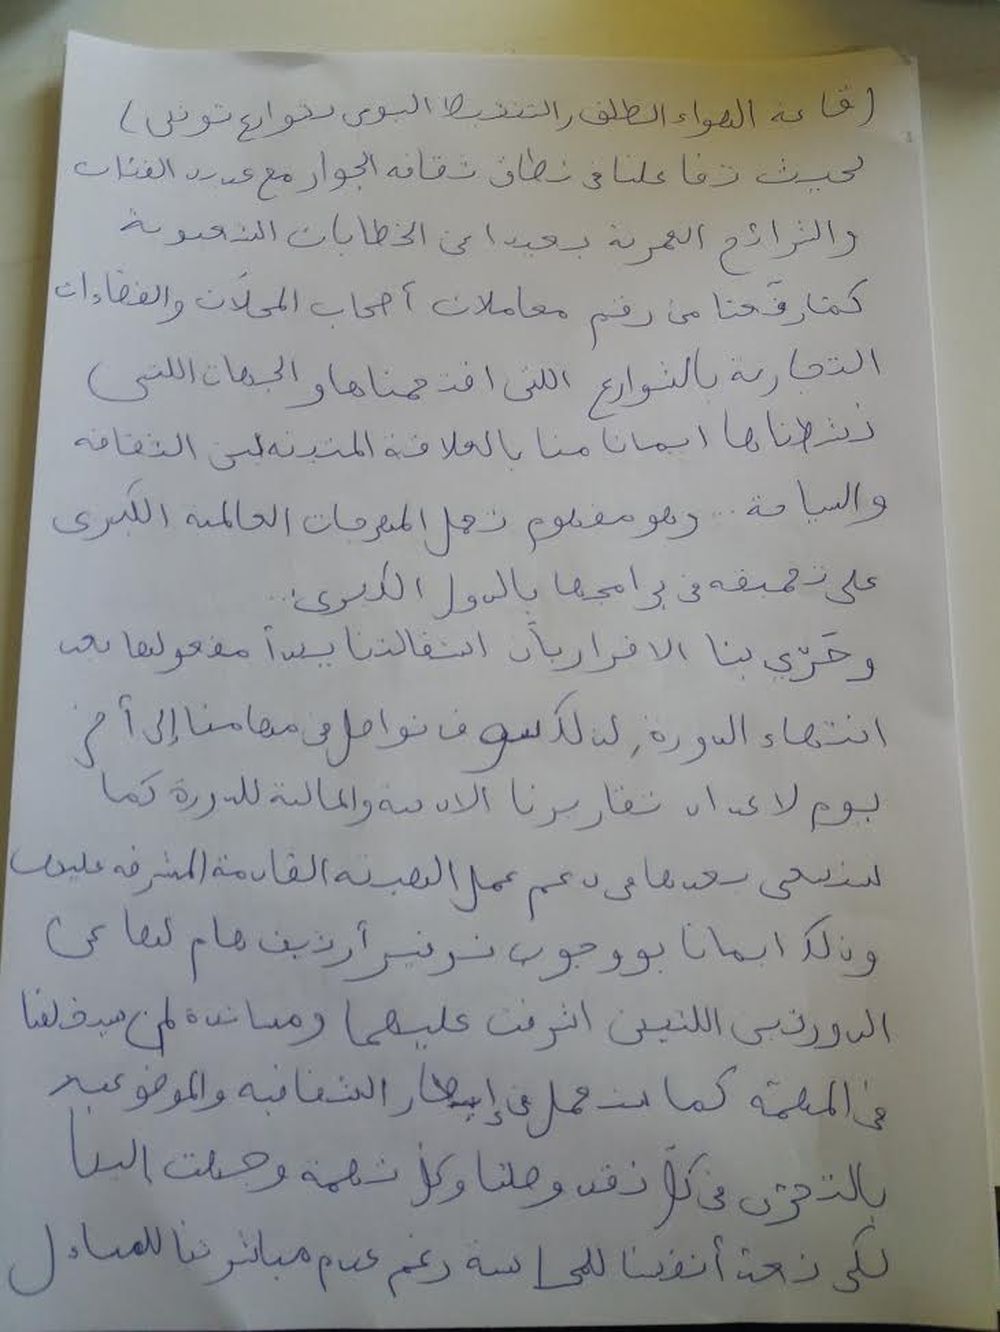 (قاعة الهواء الطلق والتنشيط اليومي بشوارع تونس)
بحيث تفاعلنا في نطاق ثقافة الجوار مع عديد الفئات
والشرائح العمرية بعيدا عن الخطابات الشعبوية
كما رفّعنا من رقم معاملات أصحاب المحلّات والفضاءات
التجارية بالشوارع اللتي اقتحمناها والجهات اللتي
نشطناها ايمانا منا بالعلاقة المتينة بين الثقافة
والسياحة... وهو مفهوم تعمل المهرجانات العالمية الكبرى
على تحقيقه في برامجها بالدول الكبرى...
وحَرّي بنا الاقرار بأن استقالتنا يبدأ مفعولها بعد
انتهاء الدورة، لذلك سوف نواصل في مهامنا إلى أخر
يوم لاعداد تقاريرنا الادبية والمالية للدورة كما
سنسعى بعدها في دعم عمل الهيئة القادمة المشرفة عليها
وذلك ايمانا بوجوب توفير أرشيف هام لها عن
الدورتين اللتين اشرفت عليهما ومساندة لمن سيخلفنا
في المهمّة كما سنعمل في إطار الشفافية والموضوعية
بالتحري في كلّ نقد وصلنا وكل تهمة وجهت الينا
لكي نعدّ أنفسنا للمحاسبة رغم عدم مباشرتنا للمسائل